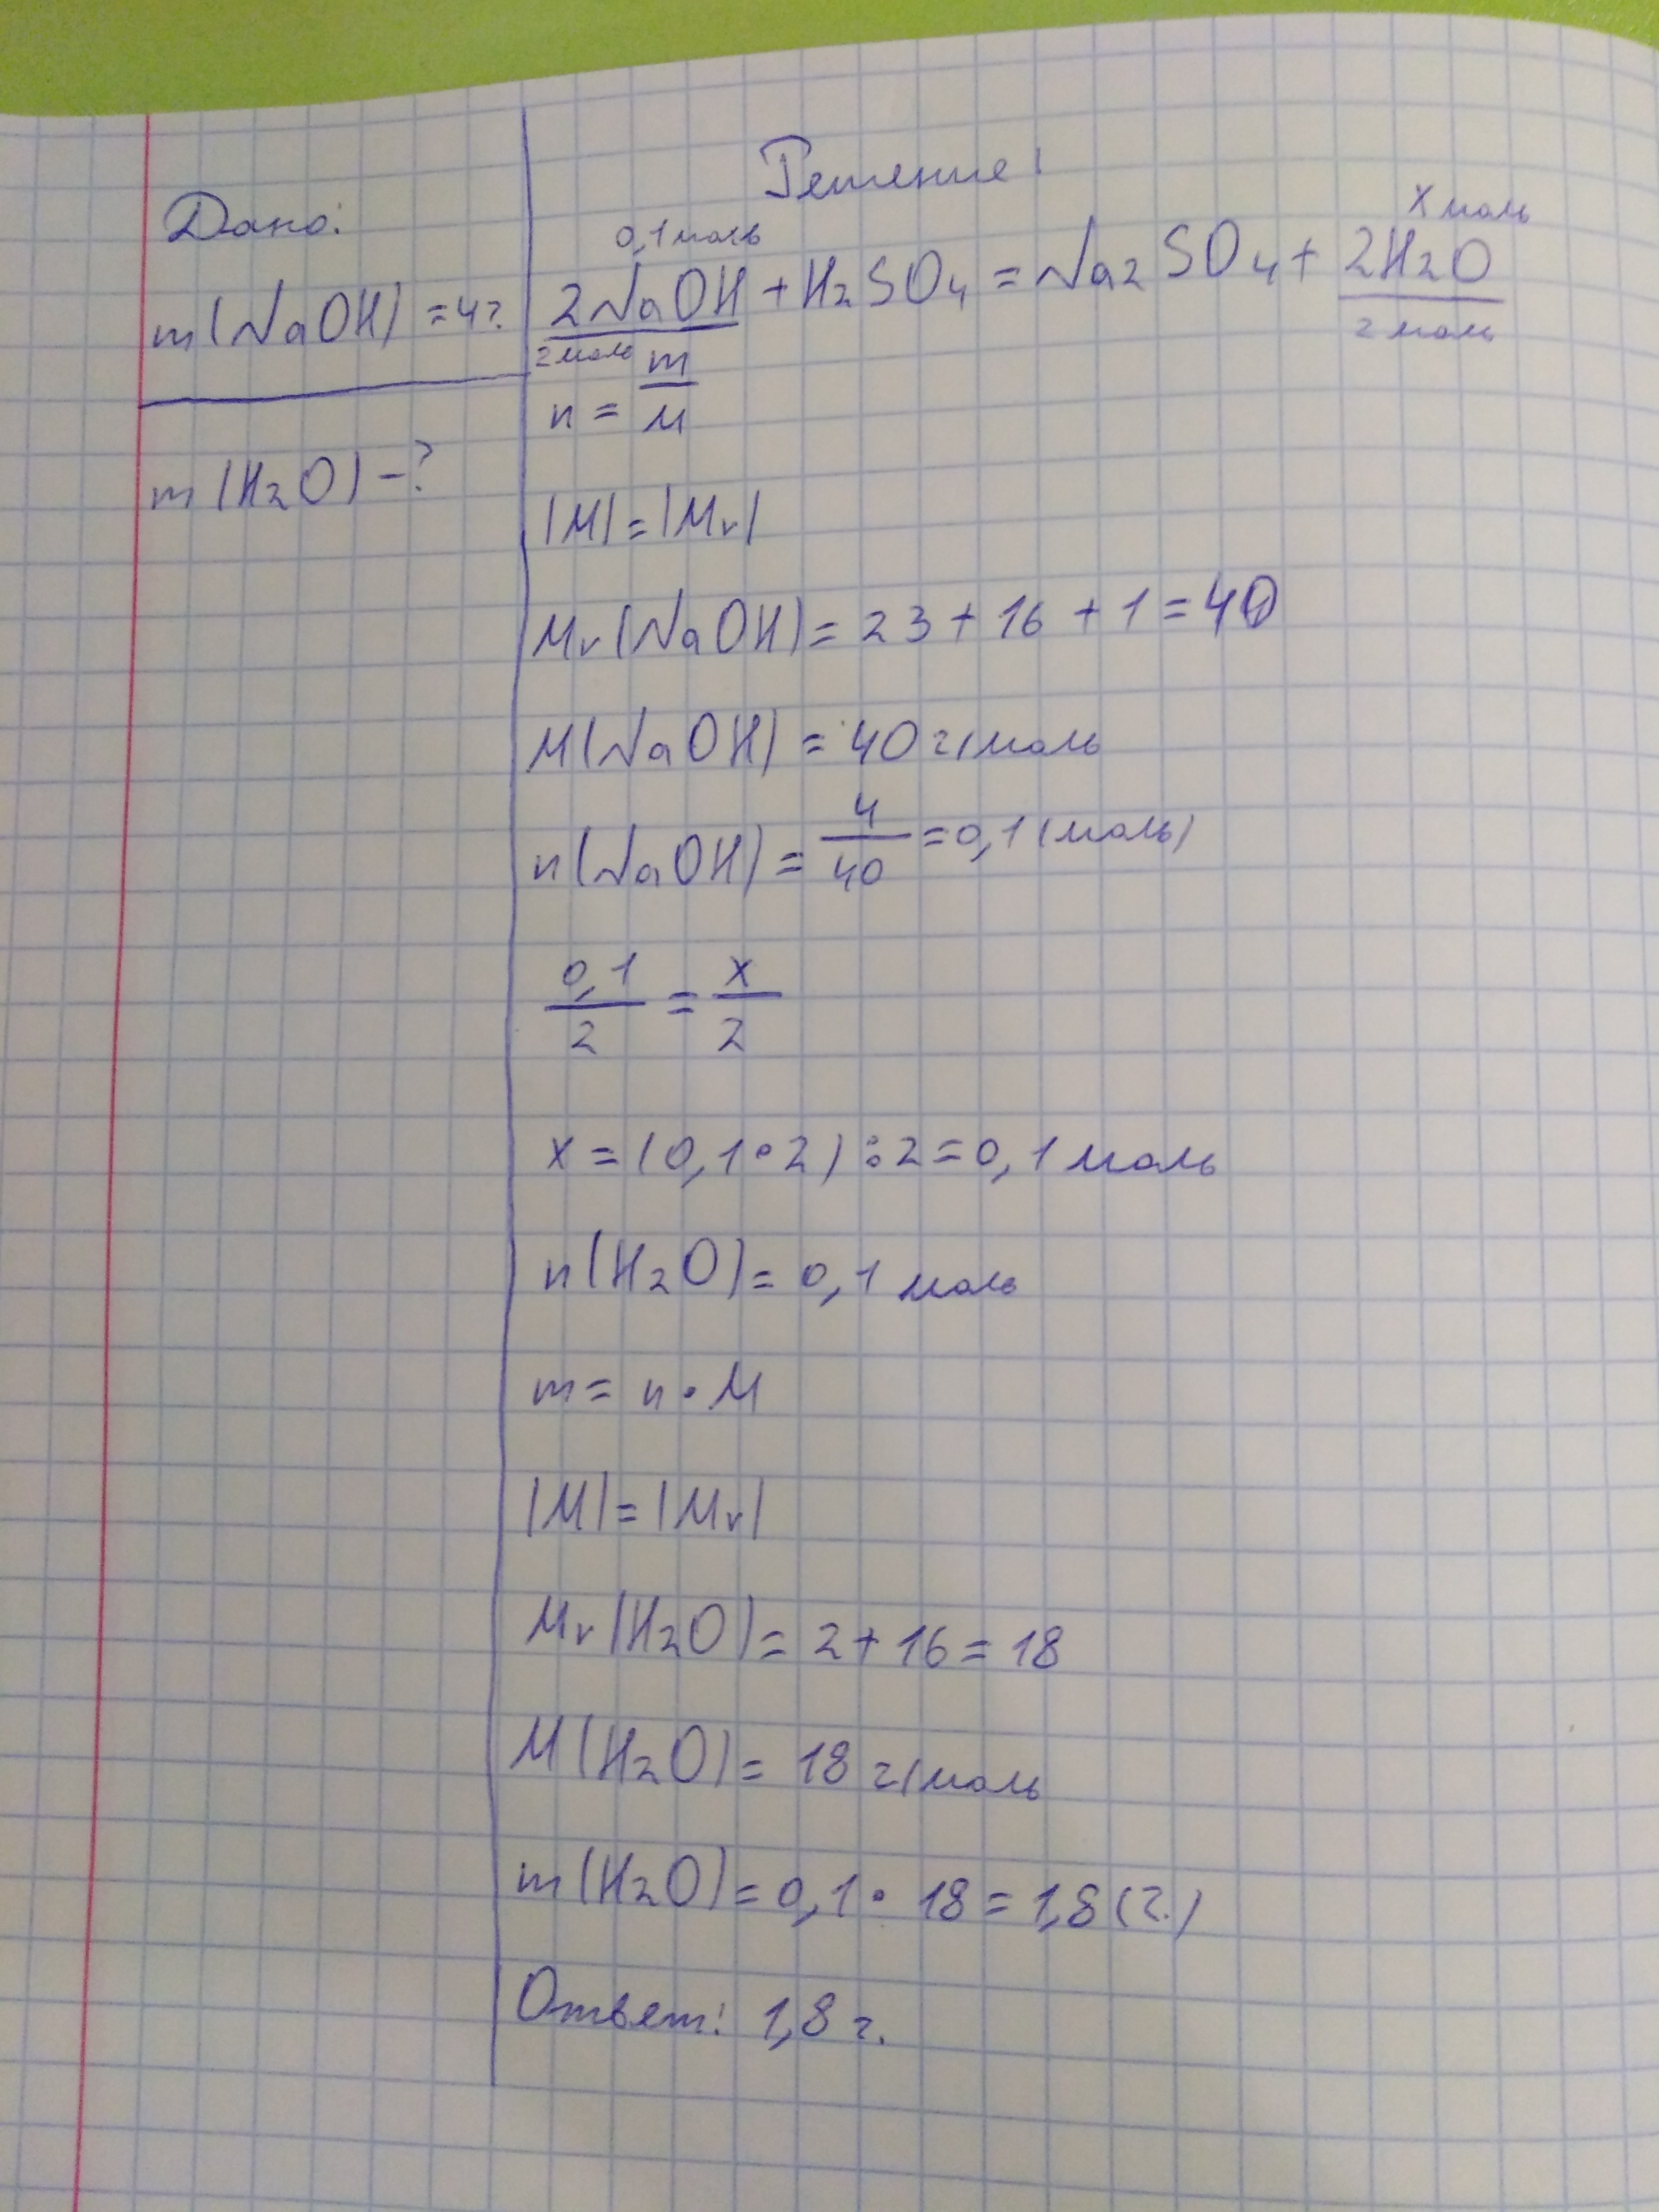 Дано:
m(NaOH) = 4г
m(H₂O) - ?
Решение:
0,1 моль
x моль
2NaOH + H₂SO₄ = Na₂SO₄ + 2H₂O
2 моль
2 моль
n = m/M
|M| = |Mr|
Mr(NaOH) = 23 + 16 + 1 = 40
M(NaOH) = 40 г/моль
n(NaOH) = 4/40 = 0,1 (моль)
0,1/2 = x/2
x = (0,1 • 2) : 2 = 0,1 моль
n(H₂O) = 0,1 моль
m = n • M
|M| = |Mr|
Mr(H₂O) = 2 + 16 = 18
M(H₂O) = 18 г/моль
m(H₂O) = 0,1 • 18 = 1,8 (г.)
Ответ: 1,8 г.